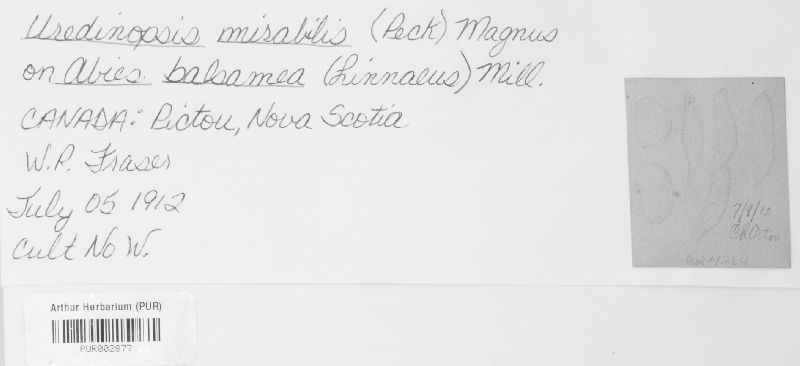 Uredinopsis mirabilis (Peck) Magnus
on Abies balsamea (Linnaeus) Mill.
CANADA: Pictou, Nova Scotia
W.P. Fraser
July 05 1912
Cult No W.
7/9/12
C.R. Orton
Arthur Herbarium (PUR)
PUR002877